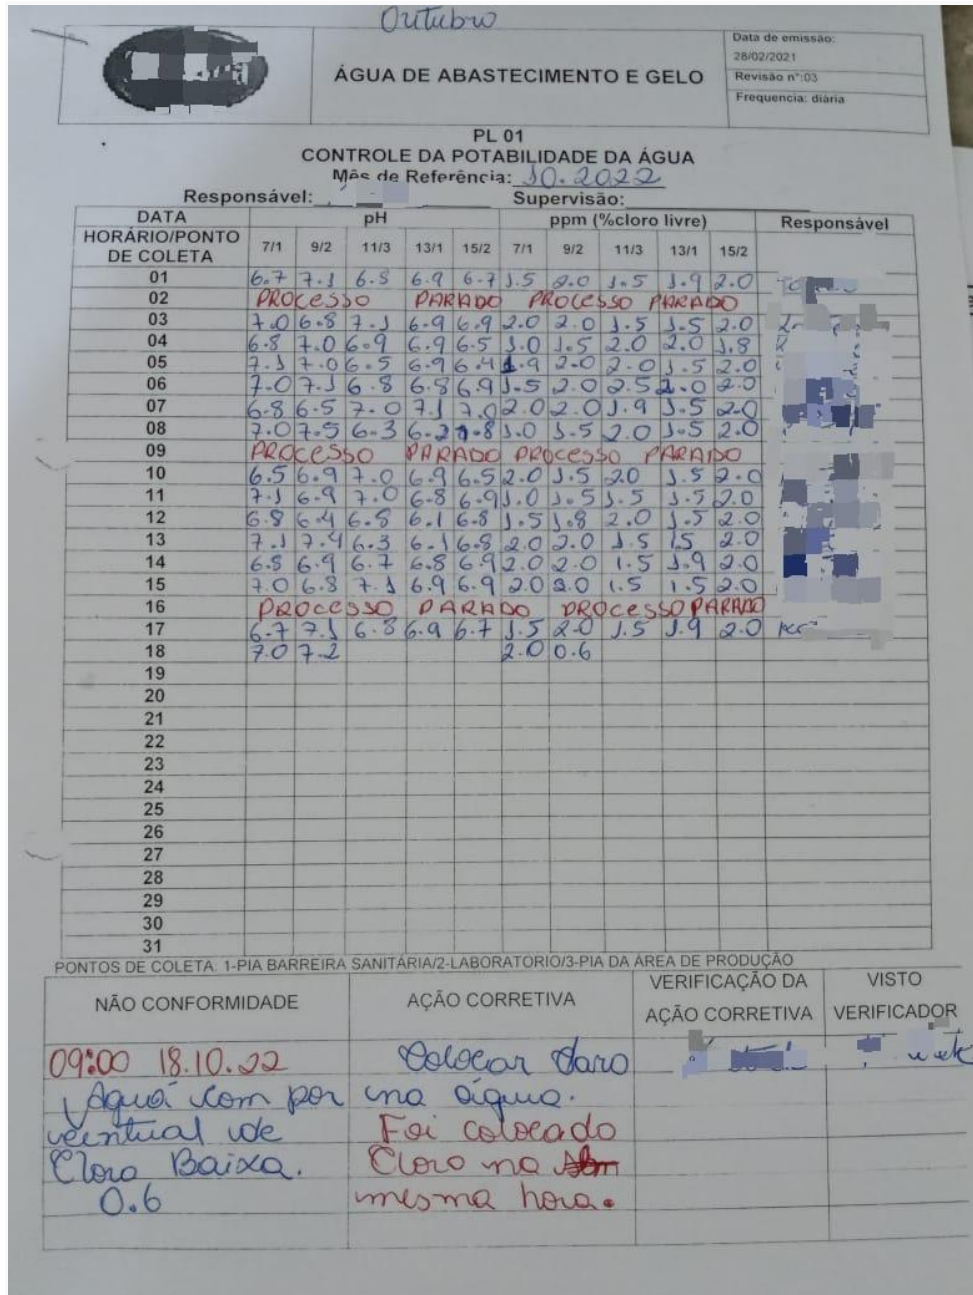 Outubro
ÁGUA DE ABASTECIMENTO E GELO
Data de emissão:
28/02/2021
Revisão n°:03
Frequencia: diária
PL 01
CONTROLE DA POTABILIDADE DA ÁGUA
Mês de Referência: 10.2022
Responsável: Supervisão:
DATA pH ppm (%cloro livre) Responsável
HORÁRIO/PONTO DE COLETA 7/1 9/2 11/3 13/1 15/2 7/1 9/2 11/3 13/1 15/2
01 6.7 7.1 6.8 6.9 6.7 1.5 2.0 1.5 1.9 2.0
02 PROCESSO PARADO PROCESSO PARADO
03 7.0 6.8 7.1 6.9 6.9 2.0 2.0 1.5 1.5 2.0
04 6.8 7.0 6.9 6.9 6.5 1.0 1.5 2.0 2.0 1.8
05 7.1 7.0 6.5 6.9 6.4 1.9 2.0 2.0 1.5 2.0
06 7.0 7.1 6.8 6.8 6.9 1.5 2.0 2.5 2.0 2.0
07 6.8 6.5 7.0 7.1 7.0 2.0 2.0 1.9 1.5 2.0
08 7.0 7.5 6.3 6.2 1.0 1.5 2.0 1.5 2.0
09 PROCESSO PARADO PROCESSO PARADO
10 6.5 6.9 7.0 6.9 6.5 2.0 1.5 20 1.5 2.0
11 7.1 6.9 7.0 6.8 6.9 1.0 1.5 1.5 1.5 2.0
12 6.8 6.4 6.8 6.1 6.8 1.5 1.8 2.0 1.5 2.0
13 7.1 7.4 6.3 6.1 6.8 2.0 2.0 1.5 15 2.0
14 6.8 6.9 6.7 6.8 6.9 2.0 2.0 1.5 1.9 2.0
15 7.0 6.8 7.1 6.9 6.9 2.0 2.0 1.5 1.5 2.0
16 PROCESSO PARADO PROCESSO PARADO
17 6.7 7.1 6.8 6.9 6.7 1.5 2.0 1.5 1.9 2.0
18 7.0 7.2 2.0 0.6
19
20
21
22
23
24
25
26
27
28
29
30
31
PONTOS DE COLETA: 1-PIA BARREIRA SANITÁRIA/2-LABORATORIO/3-PIA DA ÁREA DE PRODUÇÃO
NÃO CONFORMIDADE AÇÃO CORRETIVA VERIFICAÇÃO DA AÇÃO CORRETIVA VISTO VERIFICADOR
09:00 18.10.22 Colocar Cloro
Aguá com por na água.
centual de Foi colocado
Cloro Baixa. Cloro na
0.6 mesma hora.